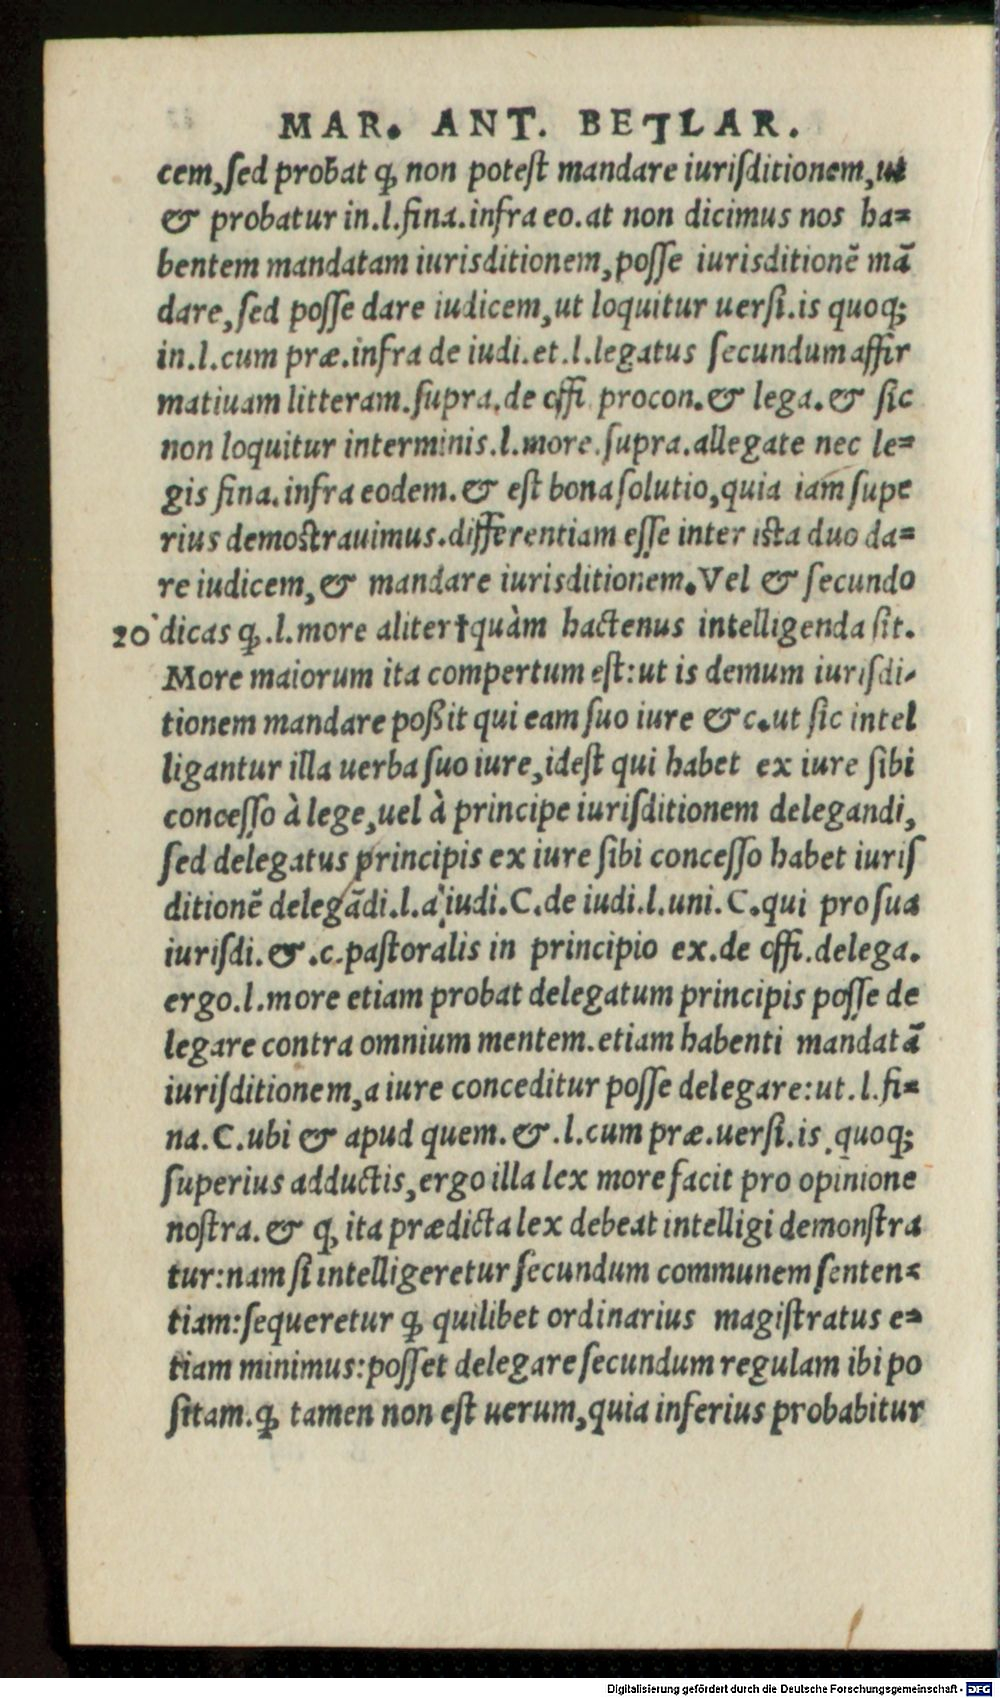 MAR. ANT. BELLAR.
cem,ſed probat ꝙ non poteſt mandare iuriſditionem,ut
& probatur in.l.fina.infra eo.at non dicimus nos ha=
bentem mandatam iurisditionem,poſſe iurisditionē mā
dare,ſed poſſe dare iudicem,ut loquitur uerſi.is quoq;
in.l.cum præ.infra de iudi.et.l.legatus ſecundum affir
matiuam litteram.ſupra.de offi procon.& lega.& ſic
non loquitur interminis.l.more.ſupra.allegate nec le=
gis fina.infra eodem.& eſt bona ſolutio,quia iam ſupe
rius demoſtrauimus.differentiam eſſe inter iſta duo da=
re iudicem,& mandare iurisditionem.Vel & ſecundo
20 dicas ꝙ.l.more aliter†quàm hactenus intelligenda ſit.
More maiorum ita compertum eſt:ut is demum iuriſdi-
tionem mandare poßit qui eam ſuo iure & c.ut ſic intel
ligantur illa uerba ſuo iure,ideſt qui habet ex iure ſibi
conceſſo à lege,uel à principe iuriſditionem delegandi,
ſed delegatus principis ex iure ſibi conceſſo habet iuriſ
ditionē delegādi.l.à iudi.C.de iudi.l.uni.C.qui pro ſua
iuriſdi.&.c.paſtoralis in principio ex.de offi.delega.
ergo.l.more etiam probat delegatum principis poſſe de
legare contra omnium mentem.etiam habenti mandatā
iuriſditionem,a iure conceditur poſſe delegare:ut.l.fi=
na.C.ubi & apud quem.&.l.cum præ.uerſi.is quoq;
ſuperius adductis,ergo illa lex more facit pro opinione
noſtra.& ꝙ ita prædicta lex debeat intelligi demonſtra
tur:nam ſi intelligeretur ſecundum communem ſenten=
tiam:ſequeretur ꝙ quilibet ordinarius magiſtratus e=
tiam minimus:poſſet delegare ſecundum regulam ibi po
ſitam.ꝙ tamen non eſt uerum,quia inferius probabitur
Digitalisierung gefördert durch die Deutsche Forschungsgemeinschaft - DFG